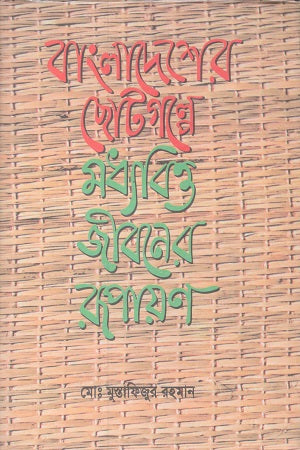 বাংলাদেশের
ছোটগল্পে
মধ্যবিত্ত
জীবনের
রূপায়ণ
মোঃ মুস্তাফিজুর রহমান